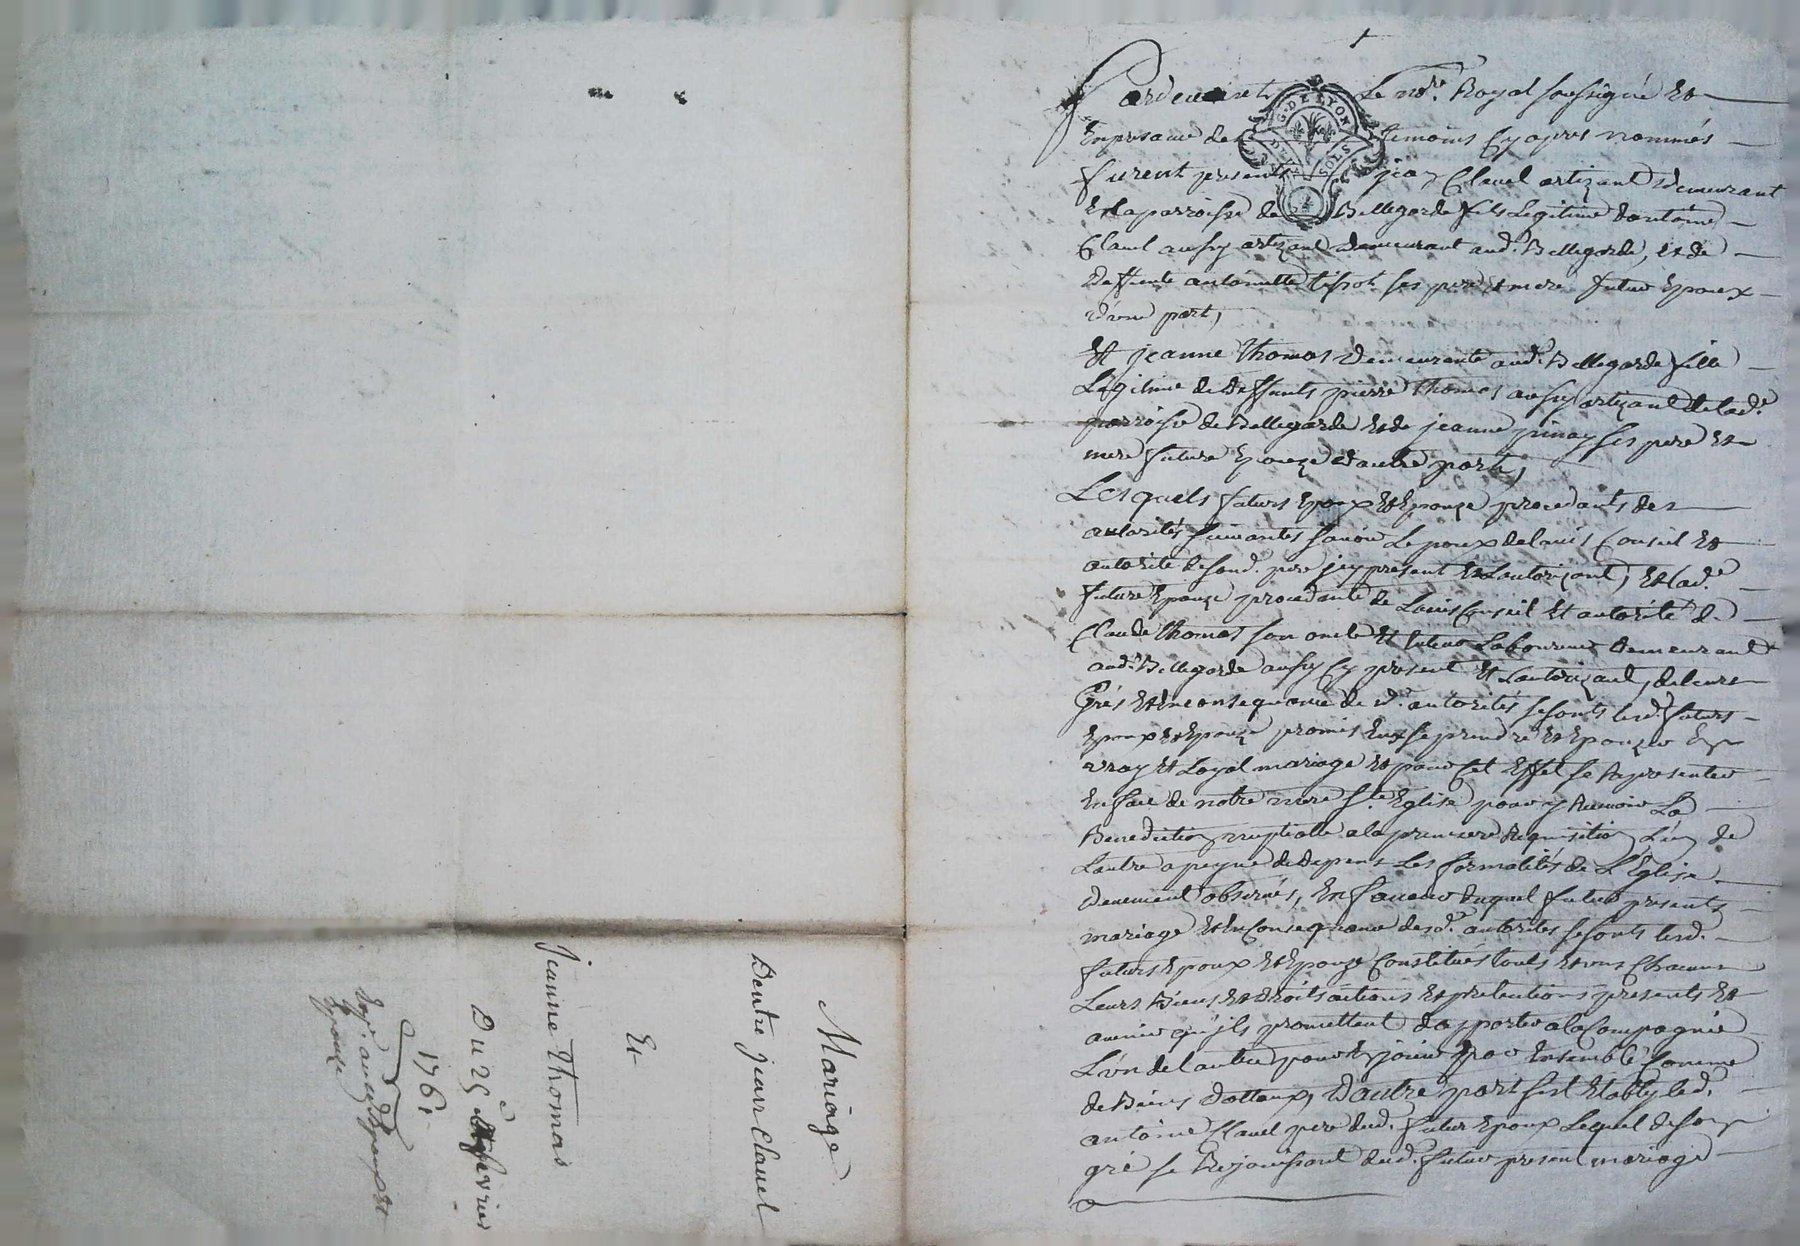 Pardevant Le nore. Royal soussigné Et
En presance des temoins Cy apres nommés
furent presents jean Clauel artizant demeurant
En la parroisse de Bellegarde fils Legitime dantoine
Clauel aussy artizant demeurant aud. Bellegarde, et de
deffunte antoinette tissot ses pere et mere futur Epoux
d'une part,
Et jeanne Thomas demeurante aud. Bellegarde fille
Légitime de deffunts pierre Thomas aussy artizant de lade.
parroisse de Bellegarde Et de jeanne pinay ses pere Et
mere future Epouze d'autre part,
Lesquels futurs Epoux Et Epouze procedants des
autorités suivantes sauoir Le poux de lauis Conseil Et
autorité de sond. pere jcy present Et Lautorizant, Et lade.
future Epouze procedante de Lauis Conseil Et autorité de
Claude Thomas son oncle Et Laboureur demeurant
aud. Bellegarde aussy Cy present Et Lautorizant, de leurs
Grés Et En consequance de sd. autorités se sonts lesd. futurs
Epoux Et Epouze promis Eux se prendre Et Epouzer En
vray Et Loyal mariage Et pour Cet Effet se Representer
En face de notre mere Ste. Eglise pour y Receuoir La
Benediction nuptialle a la premiere Requisition L'un de
Lautre a peyne de depens Les formalités de L'Eglise
deuement obseruées, En faueur duquel futur present
mariage Et En Consequance desd. autorités se sonts lesd.
futurs Epoux Et Epouze Constitués touts Et vns Chacuns
Leurs Biens Et droits actions Et pretentions presents Et
auenir qu'jls promettent daporter a la Compagnie
L'vn de Lautre pour En jouir Ensemble Comme
de Biens dottaux, D'autre part s'est Etably led.
antoine Clauel pere dud. futur Epoux Lequel de son
gré se Rejouissant dud. futur present mariage
Mariage
Dentre jean Clauel
Et
Jeanne Thomas
Du 25e feurier
1761.
Expn. aud. Epoux Et
Epouze
G. DE LYON
DEUX SOLS